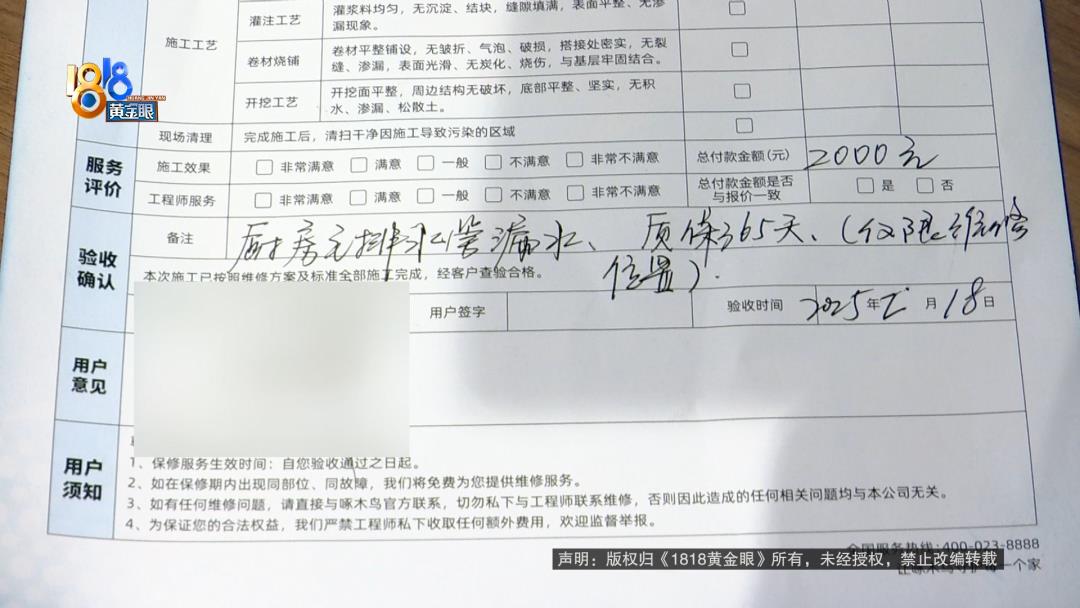 灌注工艺 灌浆料均匀，无沉淀、结块，缝隙填满，表面平整、无渗漏现象。
施工工艺
卷材烧铺 卷材平整铺设，无皱折、气泡、破损，搭接处密实，无裂缝、渗漏，表面光滑、无炭化、烧伤，与基层牢固结合。
开挖工艺 开挖面平整，周边结构无破坏，底部平整、坚实，无积水、渗漏、松散土。
1818
黄金眼
现场清理 完成施工后，清扫干净因施工导致污染的区域
服务评价
施工效果 非常满意 满意 一般 不满意 非常不满意 总付款金额(元) 2000元
工程师服务 非常满意 满意 一般 不满意 非常不满意 总付款金额是否与报价一致 是 否
验收确认
备注 厨房主排水管漏水、质保365天、(仅限维修
位置).
本次施工已按照维修方案及标准全部施工完成，经客户查验合格。
用户签字 验收时间 2025年 月18日
用户意见
用户须知
1、保修服务生效时间：自您验收通过之日起。
2、如在保修期内出现同部位、同故障，我们将免费为您提供维修服务。
3、如有任何维修问题，请直接与啄木鸟官方联系，切勿私下与工程师联系维修，否则因此造成的任何相关问题均与本公司无关。
4、为保证您的合法权益，我们严禁工程师私下收取任何额外费用，欢迎监督举报。
全国服务热线:400-023-8888
一个家
声明：版权归《1818黄金眼》所有，未经授权，禁止改编转载